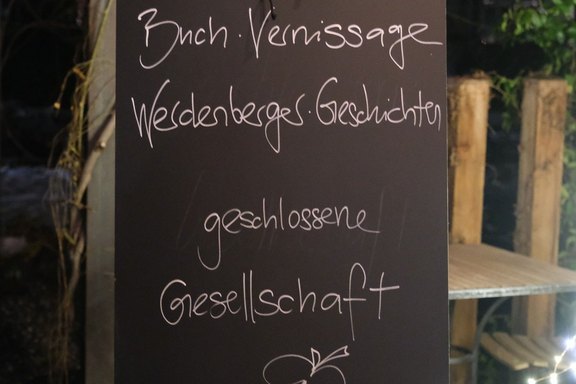 Buch·Vernissage
Werdenberger·Geschichten
geschlossene
Gesellschaft